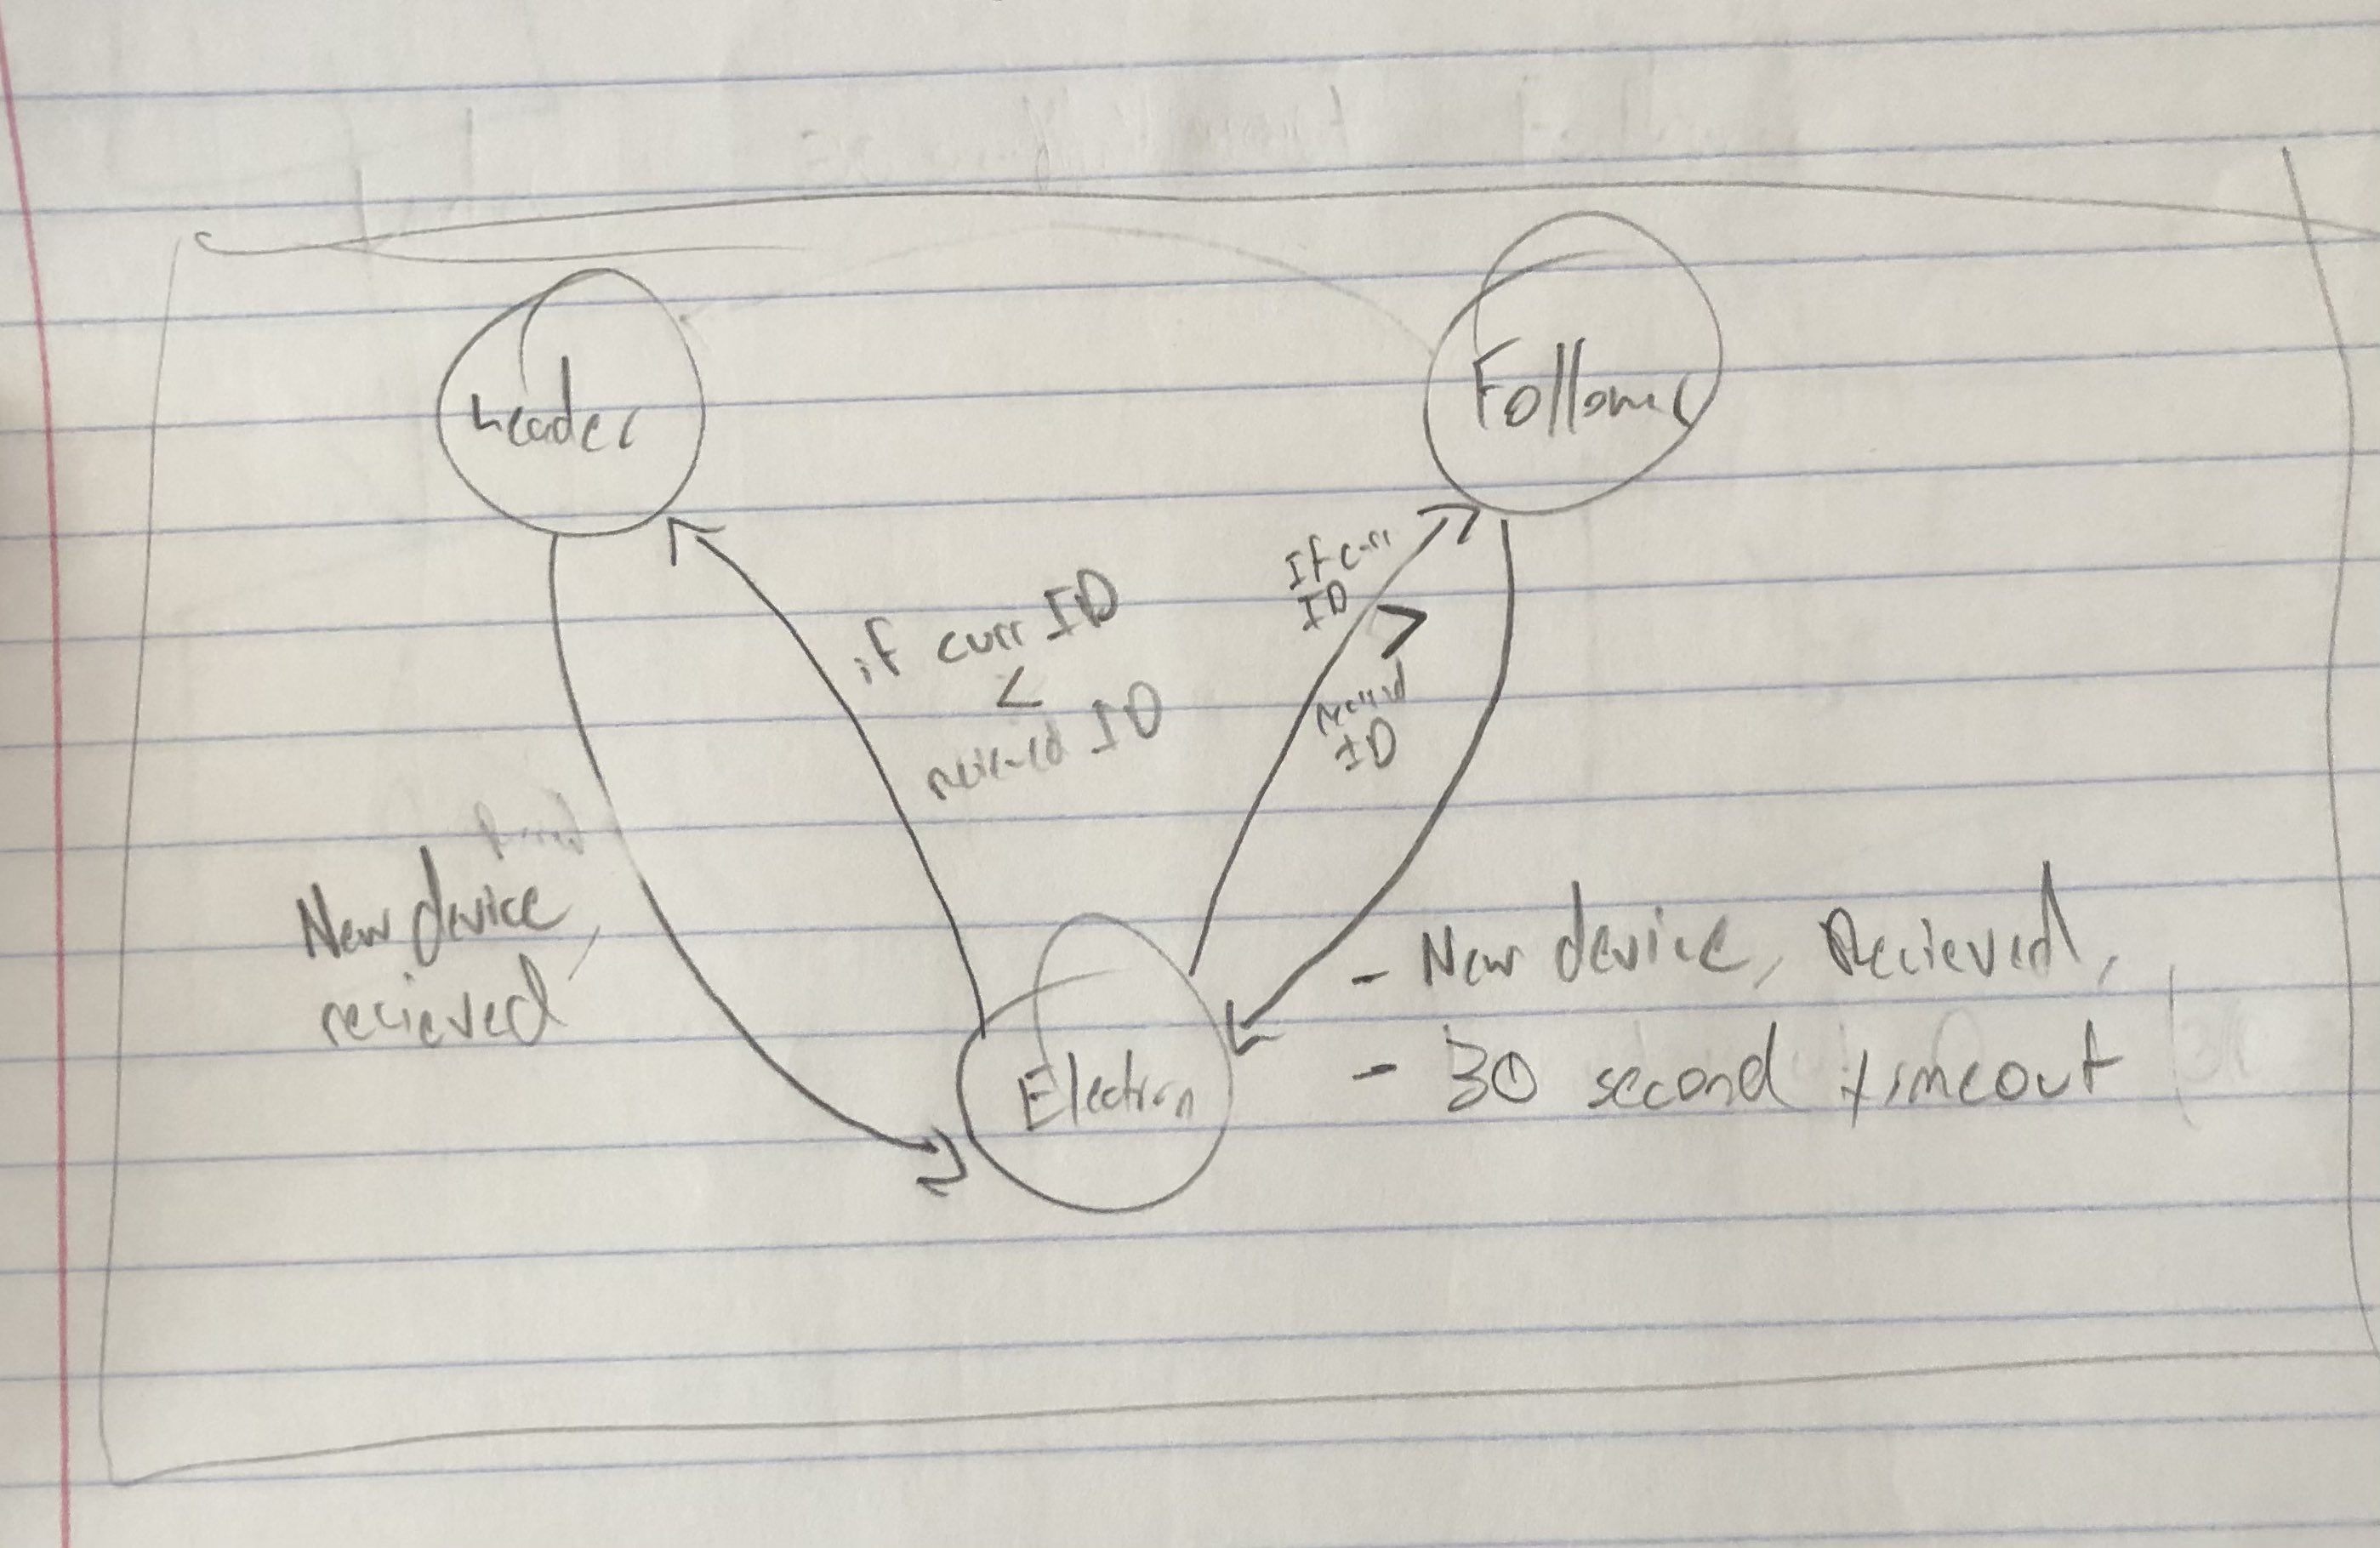 Leader
Follower
If curr
ID
>
recievd
ID
if curr ID
<
recieved ID
New device,
recieved
Election
- New device, Recieved,
- 30 second timeout